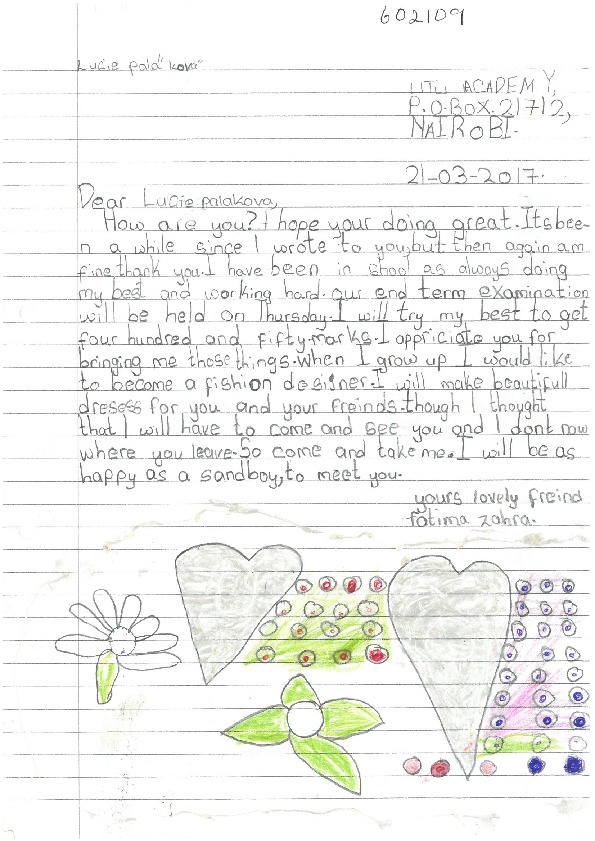 602109
Lucie pala"kova"
UTU ACADEMY,
P.O.BOX.21712,
NAIROBI.
21-03-2017.
Dear Lucie palakova,
How are you? I hope your doing great. Its bee-
n a while since I wrote to you, but then again am
fine thank you. I have been in shool as always doing
my best and working hard. our end term examination
will be held on Thursday. I will try my best to get
four hundred and fifty marks. I appriciate you for
bringing me those things. when I grow up I would like
to become a fishion designer. I will make beautifull
dresess for you and your freinds. though I thought
that I will have to come and see you and I dont now
where you leave. So come and take me. I will be as
happy as a sandboy, to meet you.
yours lovely freind
fatima zahra.